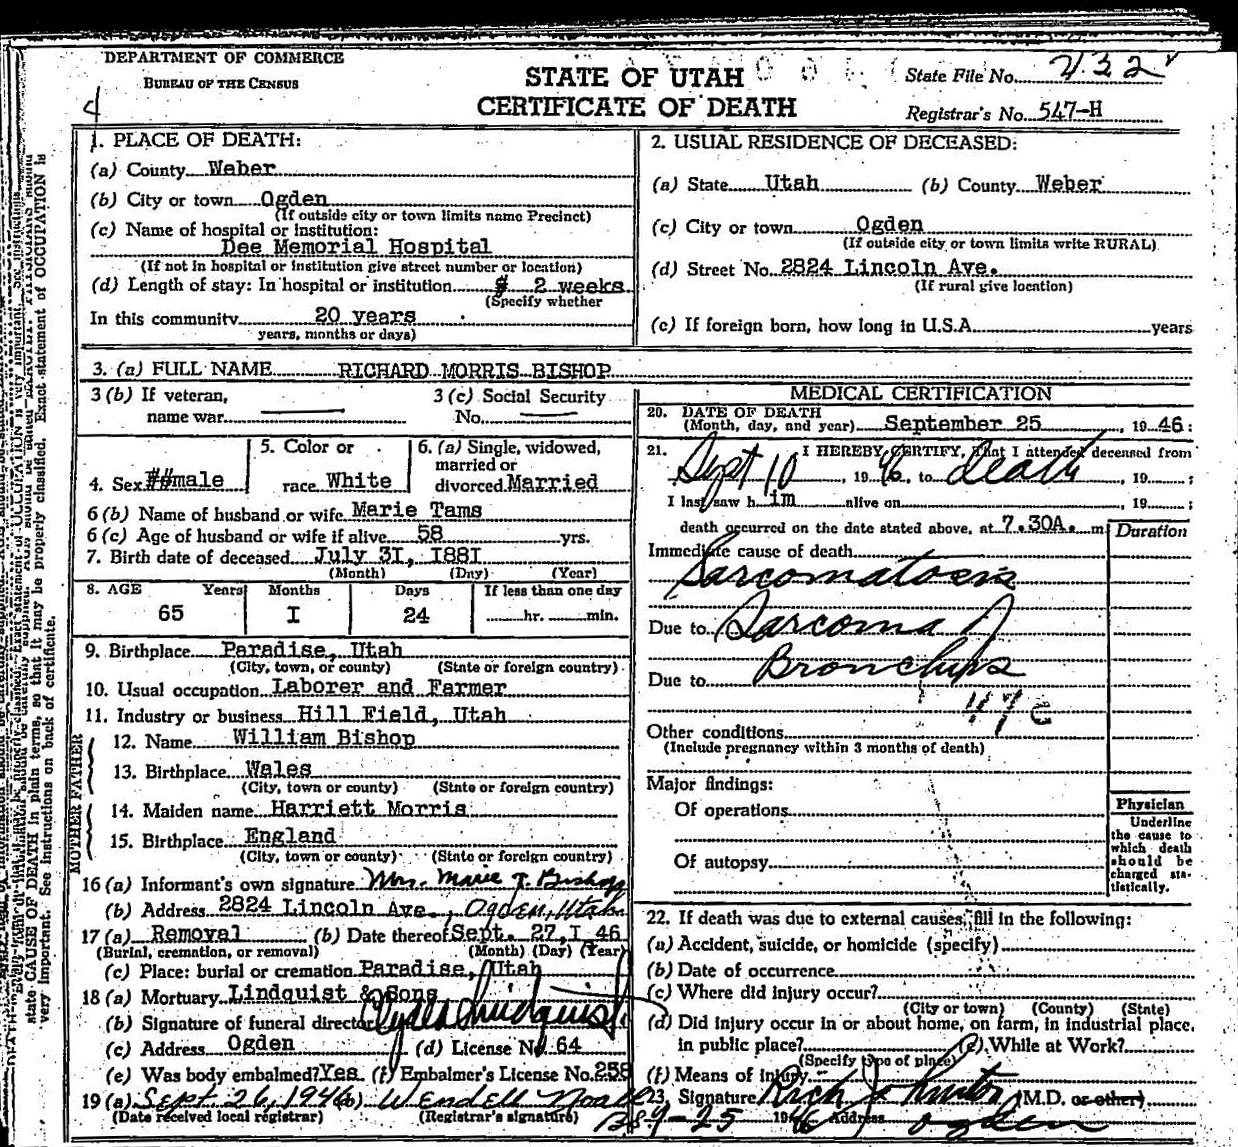 DEPARTMENT OF COMMERCE
BUREAU OF THE CENSUS
STATE OF UTAH
CERTIFICATE OF DEATH
State File No. 232
Registrar's No. 547-H
1. PLACE OF DEATH:
(a) County Weber
(b) City or town Ogden
(If outside city or town limits name Precinct)
(c) Name of hospital or institution:
Dee Memorial Hospital
(If not in hospital or institution give street number or location)
(d) Length of stay: In hospital or institution 2 weeks
(Specify whether
In this community 20 years
years, months or days)
2. USUAL RESIDENCE OF DECEASED:
(a) State Utah (b) County Weber
(c) City or town Ogden
(If outside city or town limits write RURAL)
(d) Street No. 2824 Lincoln Ave.
(If rural give location)
(e) If foreign born, how long in U.S.A. years
3. (a) FULL NAME RICHARD MORRIS BISHOP
3 (b) If veteran,
name war
3 (c) Social Security
No.
4. Sex ##male
5. Color or
race White
6. (a) Single, widowed,
married or
divorced Married
6 (b) Name of husband or wife Marie Tams
6 (c) Age of husband or wife if alive 58 yrs.
7. Birth date of deceased July 31, 1881
(Month) (Day) (Year)
8. AGE Years Months Days If less than one day
65 I 24 hr. min.
9. Birthplace Paradise, Utah
(City, town, or county) (State or foreign country)
10. Usual occupation Laborer and Farmer
11. Industry or business Hill Field, Utah
FATHER
12. Name William Bishop
13. Birthplace Wales
(City, town or county) (State or foreign country)
MOTHER
14. Maiden name Harriett Morris
15. Birthplace England
(City, town or county) (State or foreign country)
16 (a) Informant's own signature Mrs. Marie T. Bishop
(b) Address 2824 Lincoln Ave., Ogden, Utah
17 (a) Removal (b) Date thereof Sept. 27, I 46
(Burial, cremation, or removal) (Month) (Day) (Year)
(c) Place: burial or cremation Paradise, Utah
18 (a) Mortuary Lindquist & Sons
(b) Signature of funeral director Clyde Lindquist
(c) Address Ogden (d) License No. 64
(e) Was body embalmed? Yes (f) Embalmer's License No. 258
19 (a) Sept 26, 1946 (b) Wendell Noall
(Date received local registrar) (Registrar's signature)
MEDICAL CERTIFICATION
20. DATE OF DEATH
(Month, day, and year) September 25, 1946:
21. I HEREBY CERTIFY, that I attended deceased from
Sept 10, 1946 to death, 19 ;
I last saw h im alive on , 19 ;
death occurred on the date stated above, at 7.30A. m
Duration
Immediate cause of death
Sarcomatosis
Due to Sarcoma of
Bronchus
Due to
47c
Other conditions
(Include pregnancy within 3 months of death)
Major findings:
Of operations
Of autopsy
Physician
Underline
the cause to
which death
should be
charged sta-
tistically.
22. If death was due to external causes, fill in the following:
(a) Accident, suicide, or homicide (specify)
(b) Date of occurrence
(c) Where did injury occur?
(City or town) (County) (State)
(d) Did injury occur in or about home, on farm, in industrial place,
in public place? (e) While at Work?
(Specify type of place)
(f) Means of injury
23. Signature Rich Johnston (M.D. or other)
9-25 1946 Address Ogden
state CAUSE OF DEATH in plain terms, so that it may be properly classified. Exact statement of OCCUPATION is
very important. See instructions on back of certificate.